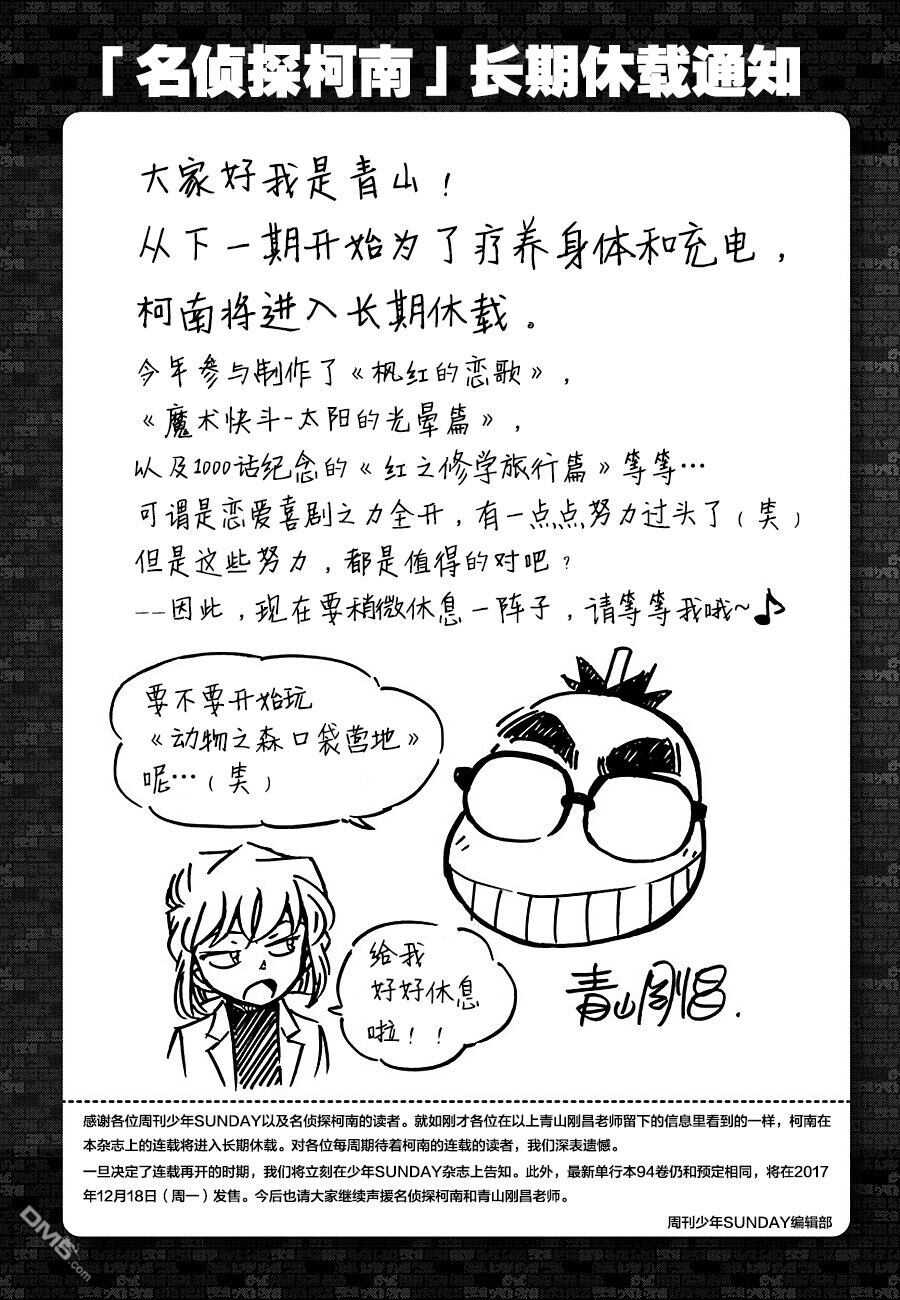 「名侦探柯南」长期休载通知
大家好我是青山！
从下一期开始为了疗养身体和充电，
柯南将进入长期休载。
今年参与制作了《枫红的恋歌》，
《魔术快斗-太阳的光晕篇》，
以及1000话纪念的《红之修学旅行篇》等等…
可谓是恋爱喜剧之力全开，有一点点努力过头了（笑）
但是这些努力，都是值得的对吧？
——因此，现在要稍微休息一阵子，请等等我哦~♪
要不要开始玩
《动物之森口袋营地》
呢…（笑）
给我
好好休息
啦！！
青山刚昌.
感谢各位周刊少年SUNDAY以及名侦探柯南的读者。就如刚才各位在以上青山刚昌老师留下的信息里看到的一样，柯南在
本杂志上的连载将进入长期休载。对各位每周期待着柯南的连载的读者，我们深表遗憾。
一旦决定了连载再开的时期，我们将立刻在少年SUNDAY杂志上告知。此外，最新单行本94卷仍和预定相同，将在2017
年12月18日（周一）发售。今后也请大家继续声援名侦探柯南和青山刚昌老师。
周刊少年SUNDAY编辑部
DMB5.com